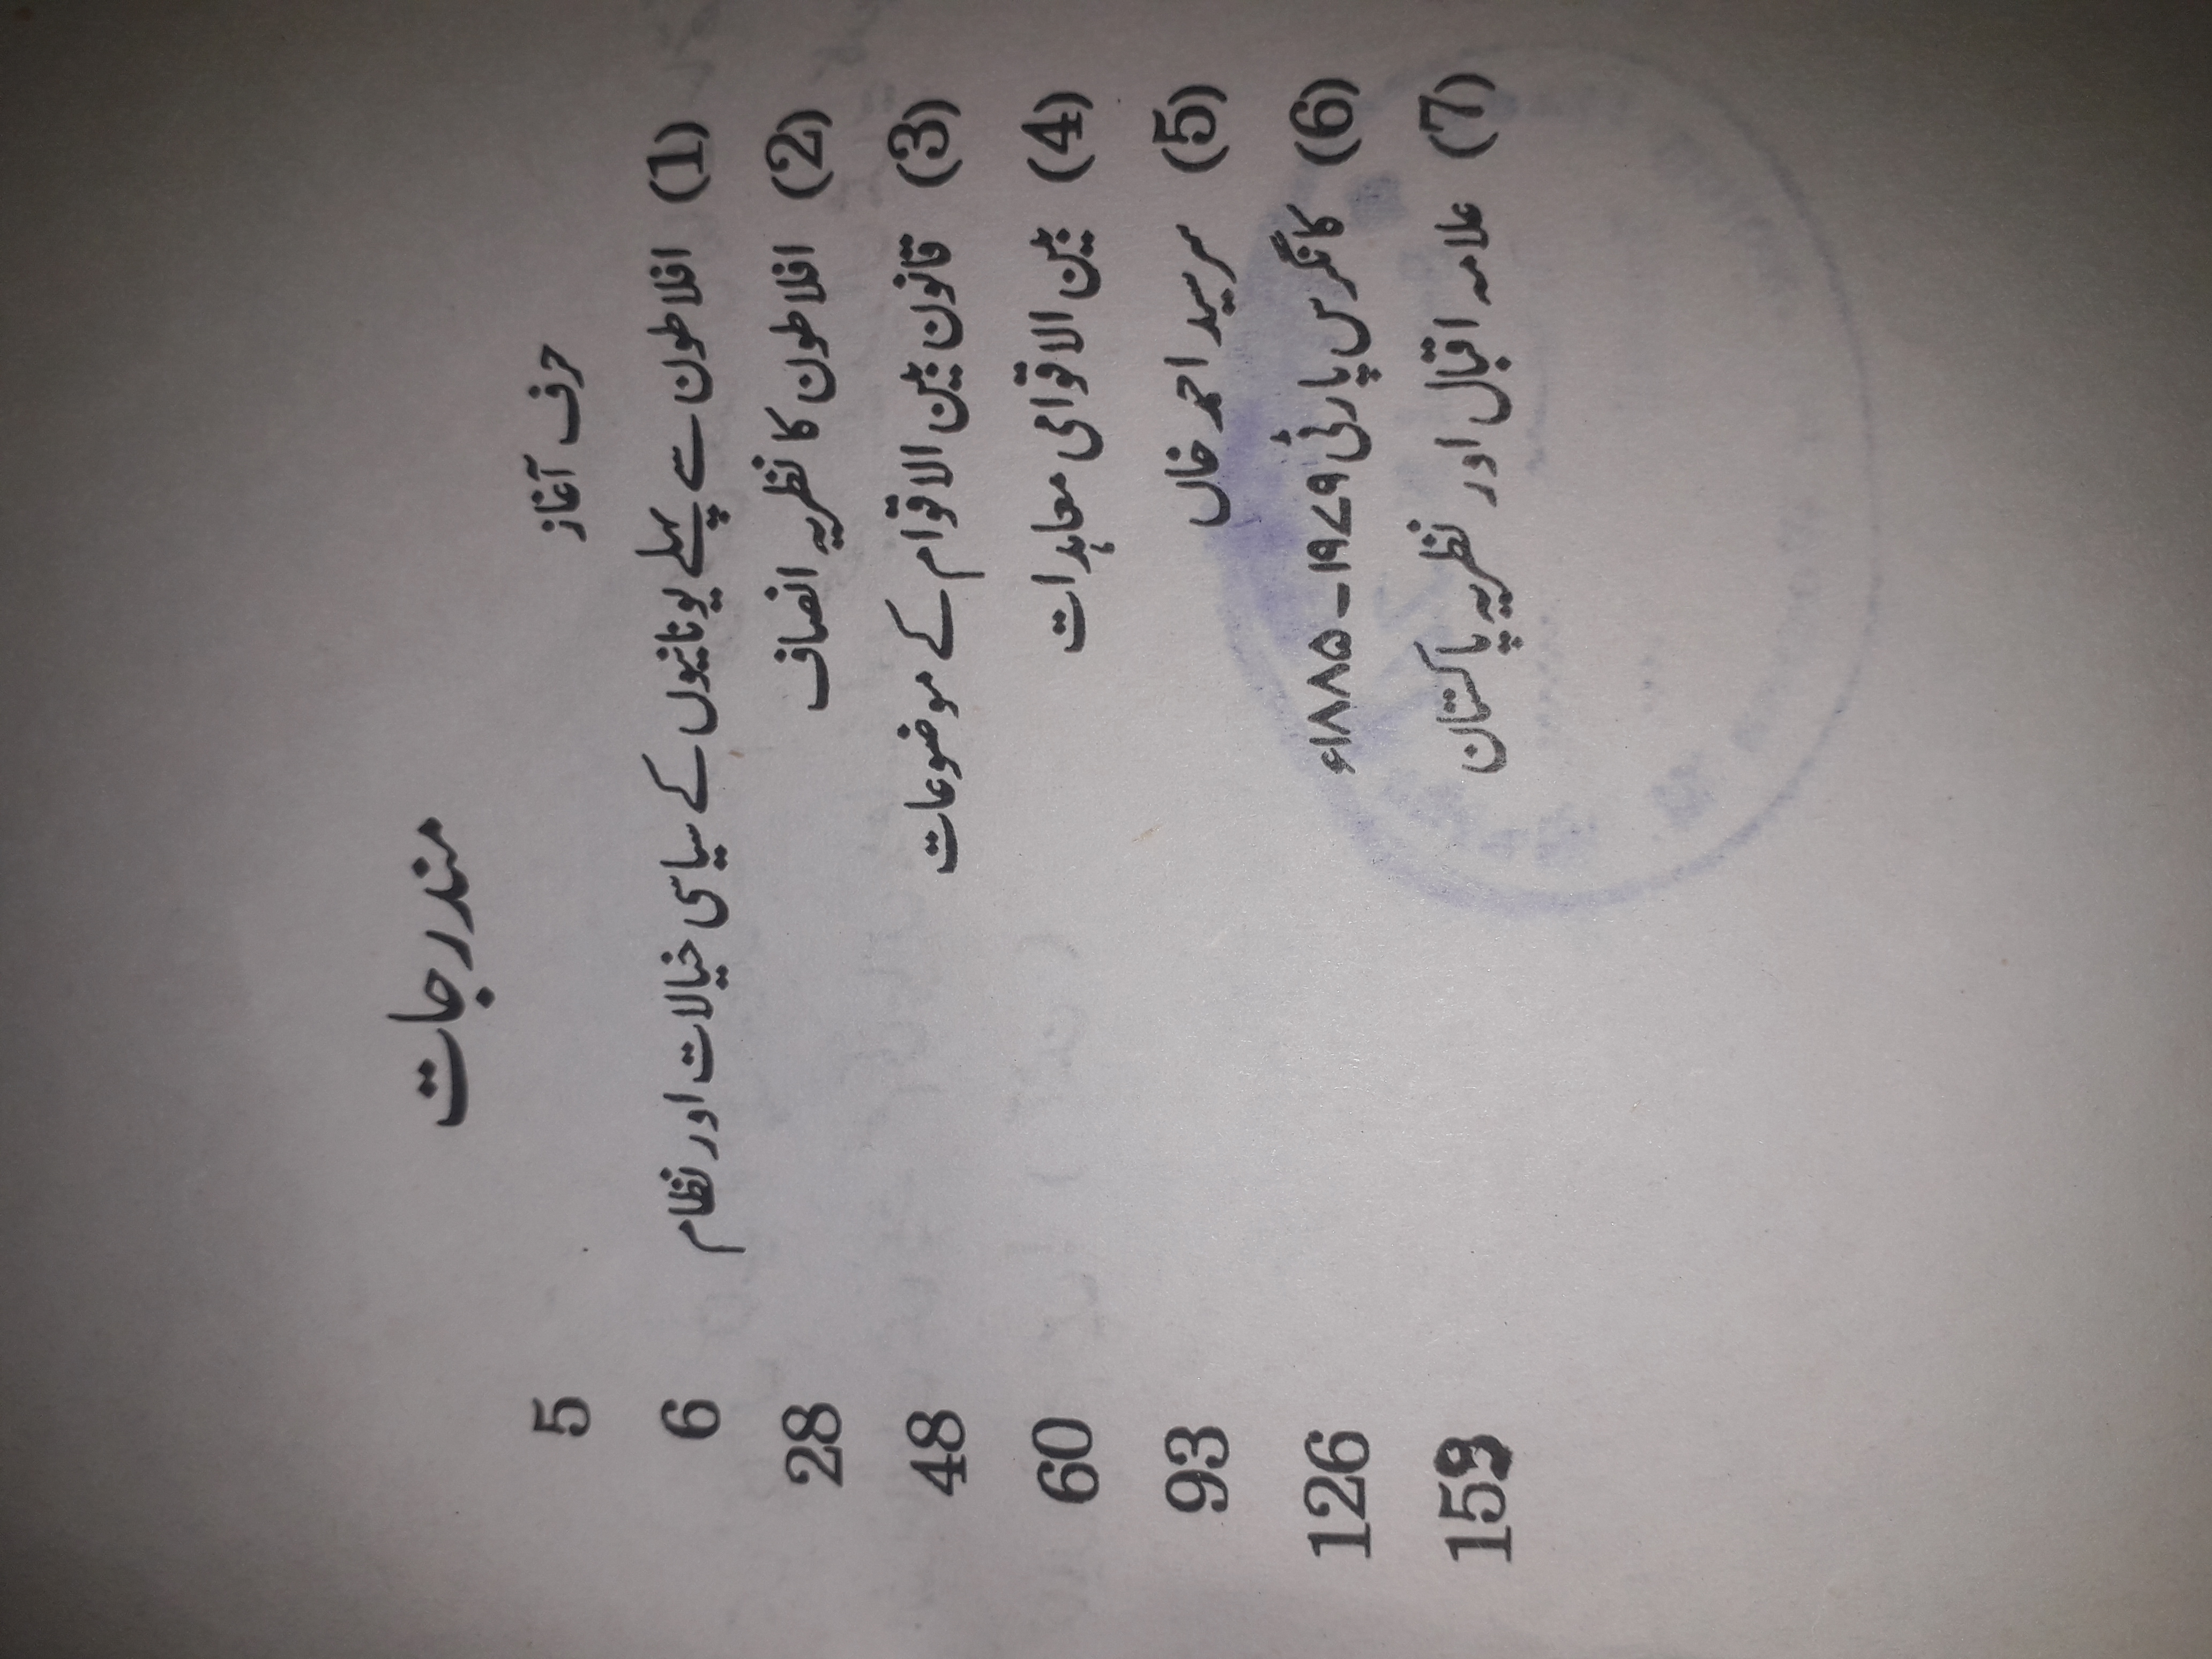 مندرجات
حرف آغاز 5
(1) افلاطون سے پہلے یونانیوں کے سیاسی خیالات اور نظام 6
(2) افلاطون کا نظریہ انصاف 28
(3) قانون بین الاقوام کے موضوعات 48
(4) بین الاقوامی معاہدات 60
(5) سرسید احمد خاں 93
(6) کانگرس پارٹی ۱۹۷۹–۱۸۸۵ء 126
(7) علامہ اقبال اور نظریہ پاکستان 159